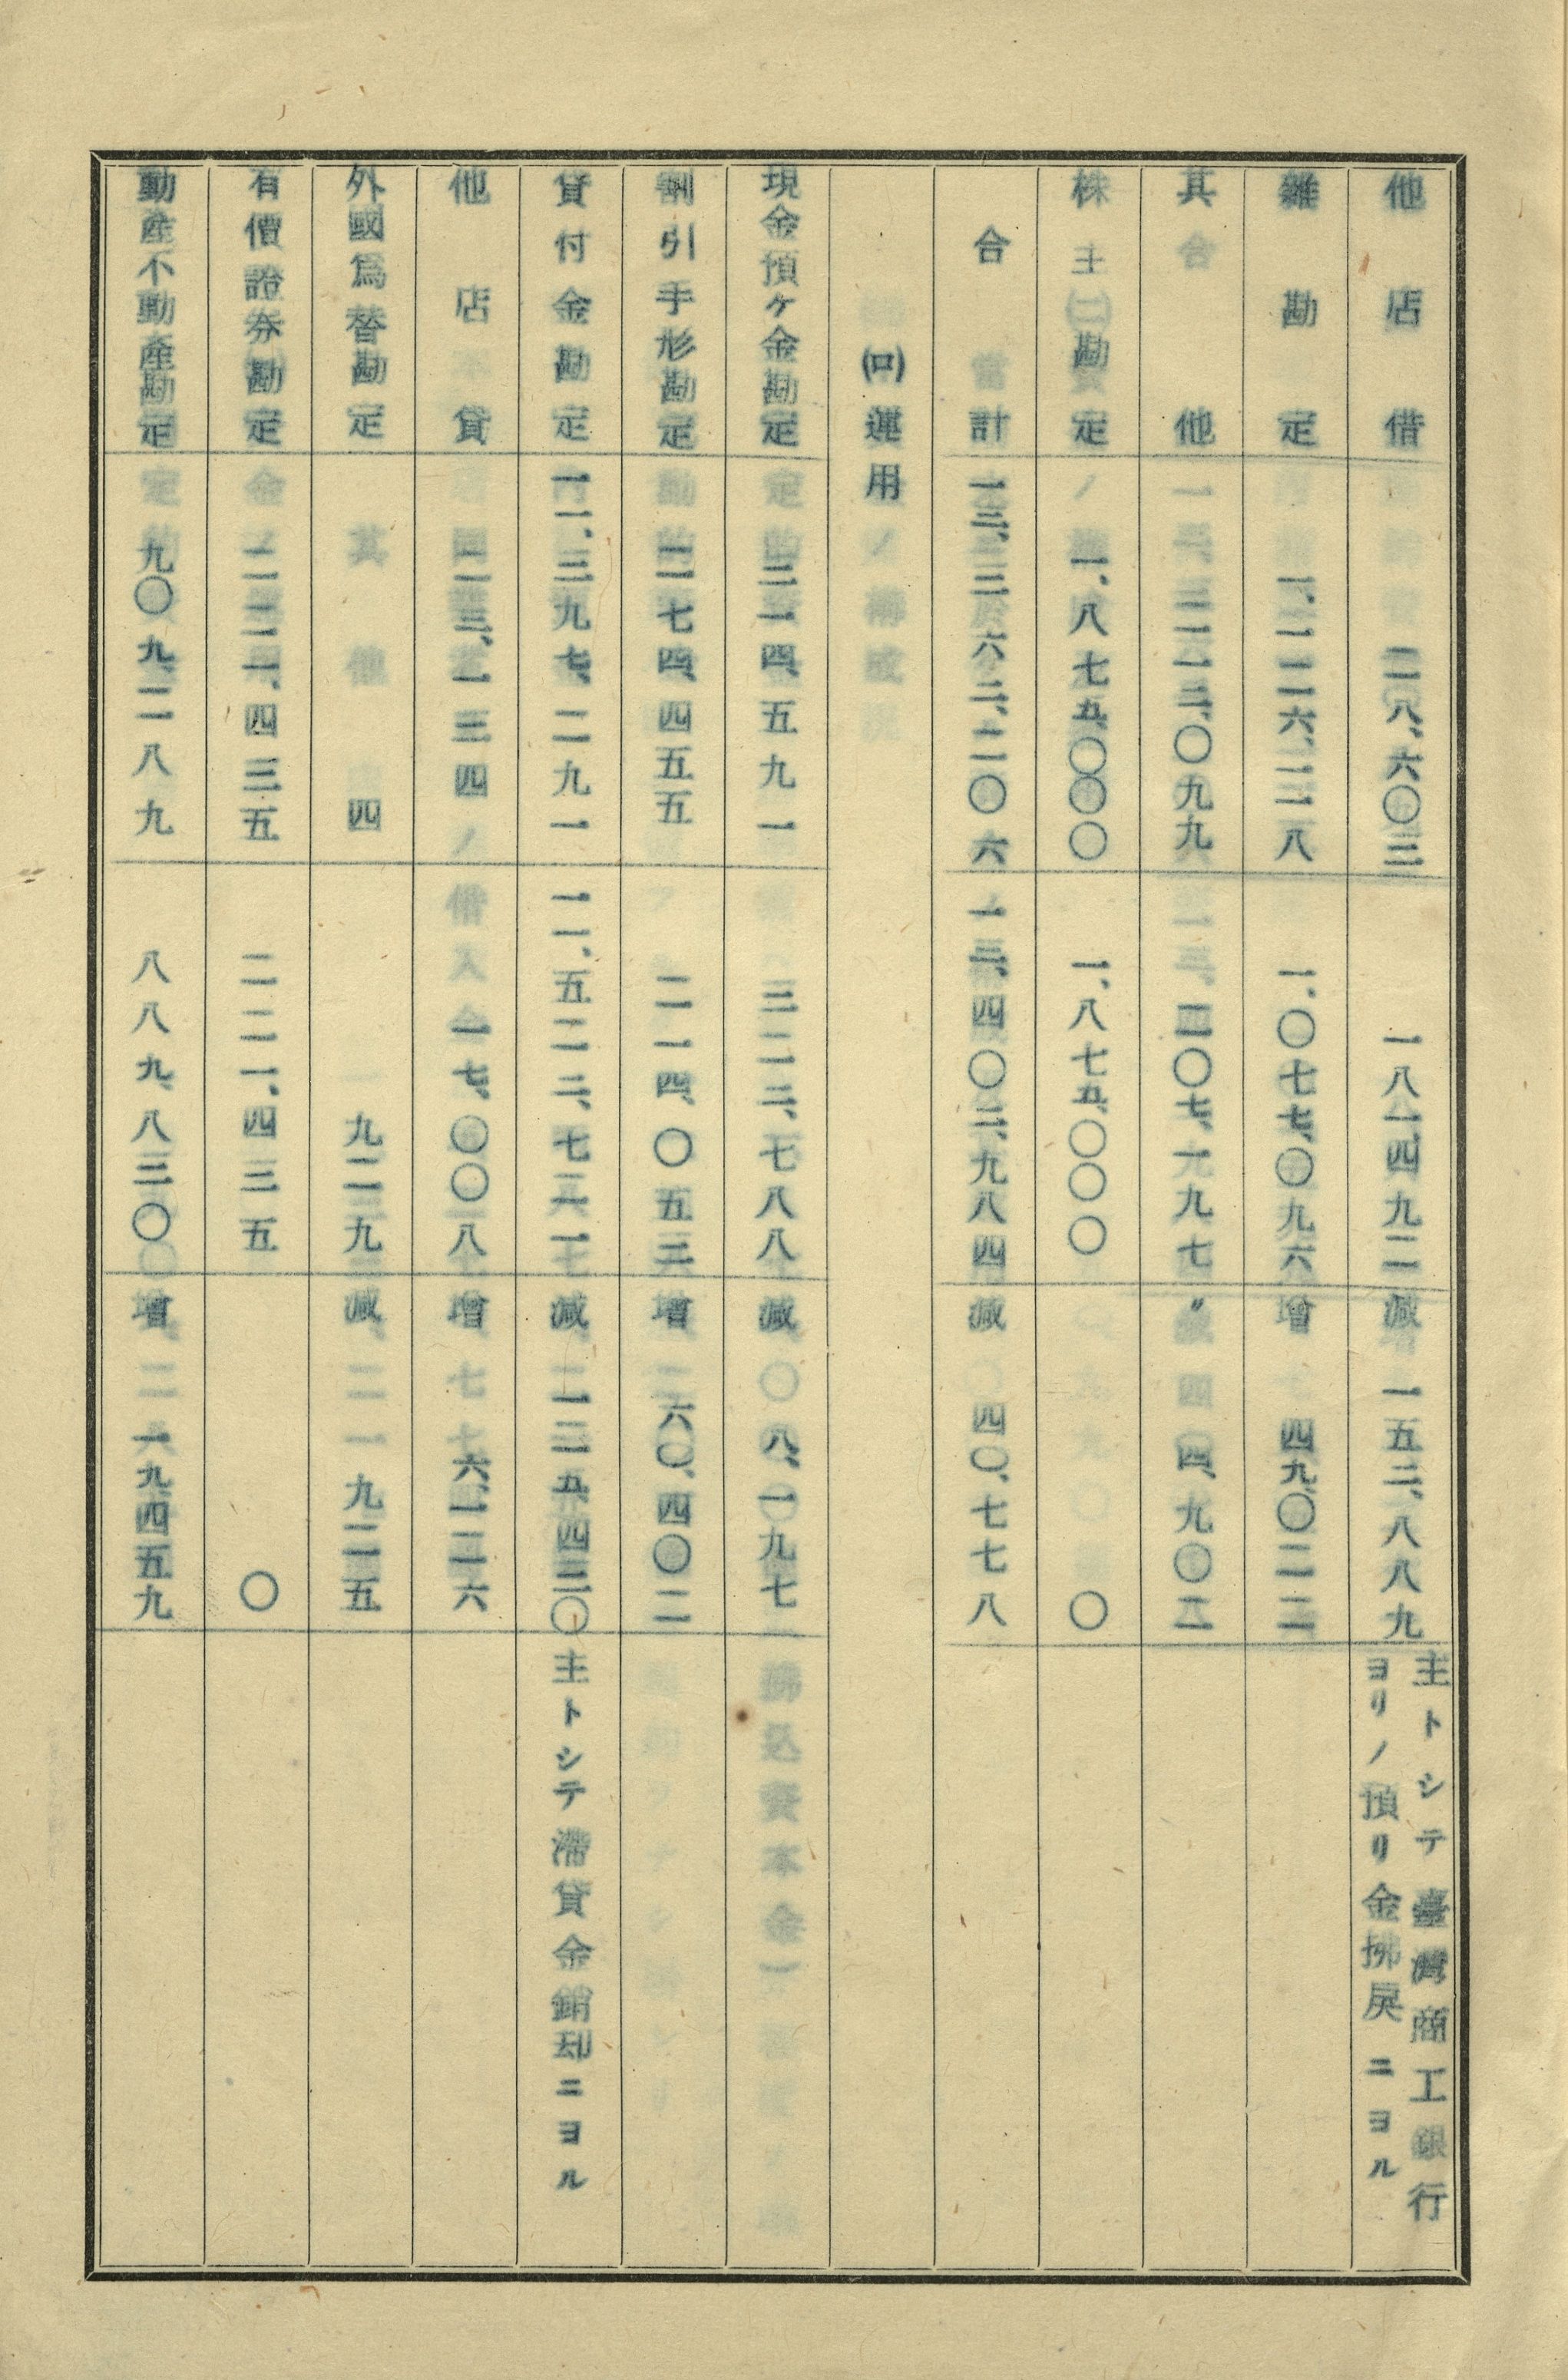 他店借 二八、六〇三 一八一、四九二 減 一五二、八八九 主トシテ臺灣商工銀行
ヨリノ預リ金拂戻ニヨル
雜勘定 一、一二六、一一八 一、〇七七、〇九六 増 四九、〇二二
其他 〃
株主勘定 一、八七五、〇〇〇 一、八七五、〇〇〇 〇
合計 一三、三六二、二〇六 一三、四〇二、九八四 減 四〇、七七八
(ロ)運用
現金預ケ金勘定 三一四、五九一 三二二、七八八 減 八、一九七
割引手形勘定 二七四、四五五 二一四、〇五三 増 六〇、四〇二
貸付金勘定 一一、三九七、二九一 一一、五二二、七二一 減 一二五、四三〇 主トシテ滯貸金銷却ニヨル
他店貸 二三、一三四 一七、〇〇八 増 六、一二六
外國爲替勘定 四 九二九 減 九二五
有價證券勘定 二二一、四三五 二二一、四三五 〇
動産不動産勘定 九〇九、二八九 八八九、八三〇 増 一九、四五九